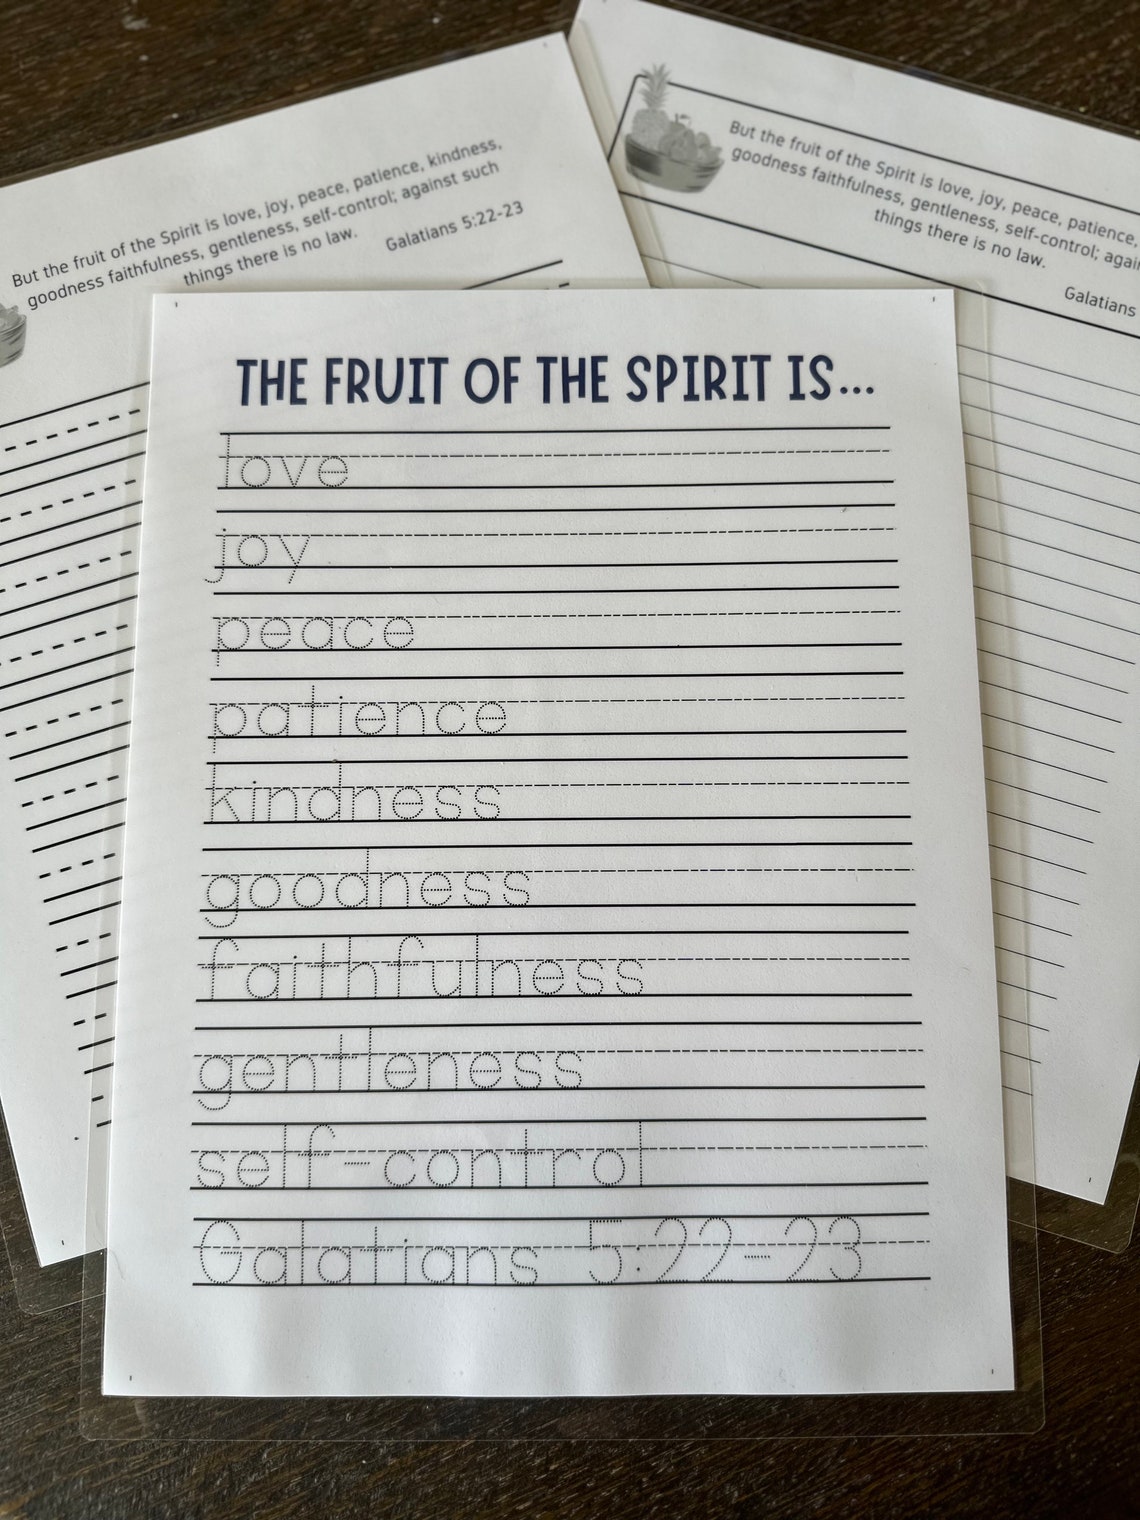 But the fruit of the Spirit is love, joy, peace, patience, kindness,
goodness faithfulness, gentleness, self-control; against such
things there is no law.
Galatians 5:22-23
But the fruit of the Spirit is love, joy, peace, patience,
goodness faithfulness, gentleness, self-control; again
things there is no law.
Galatians
THE FRUIT OF THE SPIRIT IS...
love
joy
peace
patience
kindness
goodness
faithfulness
gentleness
self-control
Galatians 5:22-23